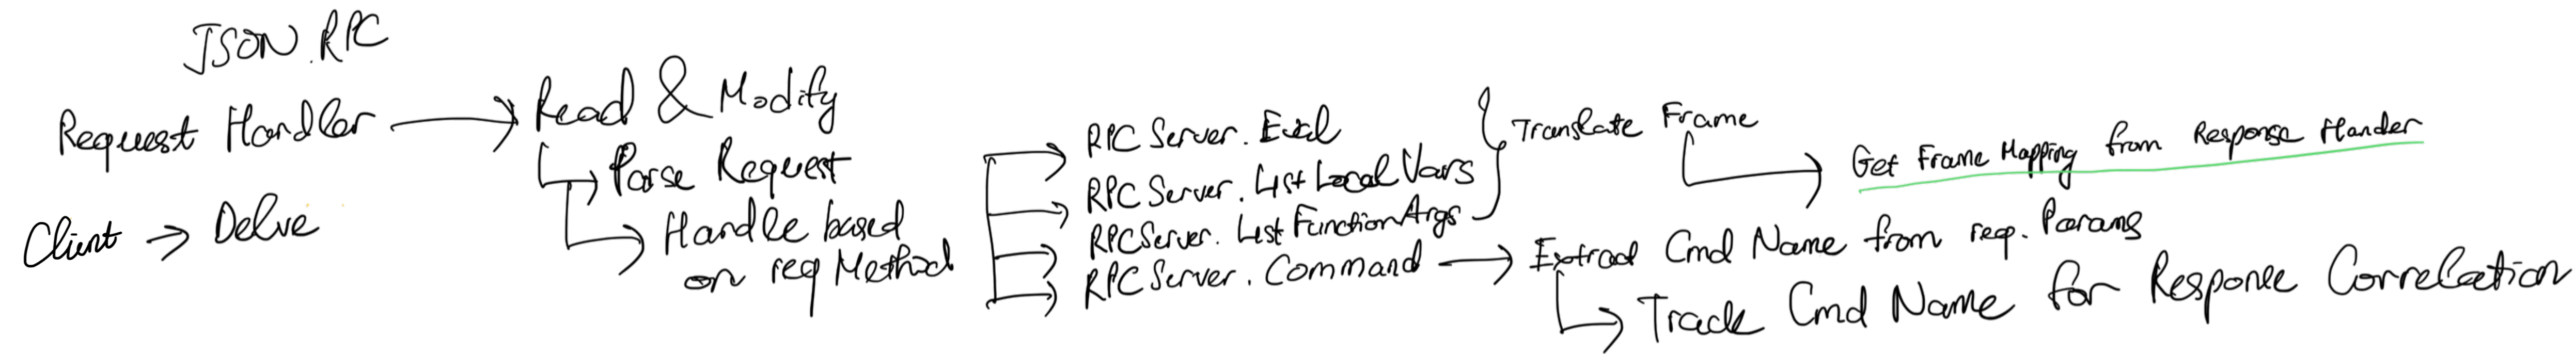 JSON.RPC
Request Handler
Client → Delve
Read & Modify
Parse Request
Handle based
on req Method
RPC Server. Eval
RPC Server. List Local Vars
RPC Server. List Function Args
RPC Server. Command
Translate Frame
Get Frame Mapping from Response Hander
Extract Cmd Name from req. Params
Track Cmd Name for Response Correlation